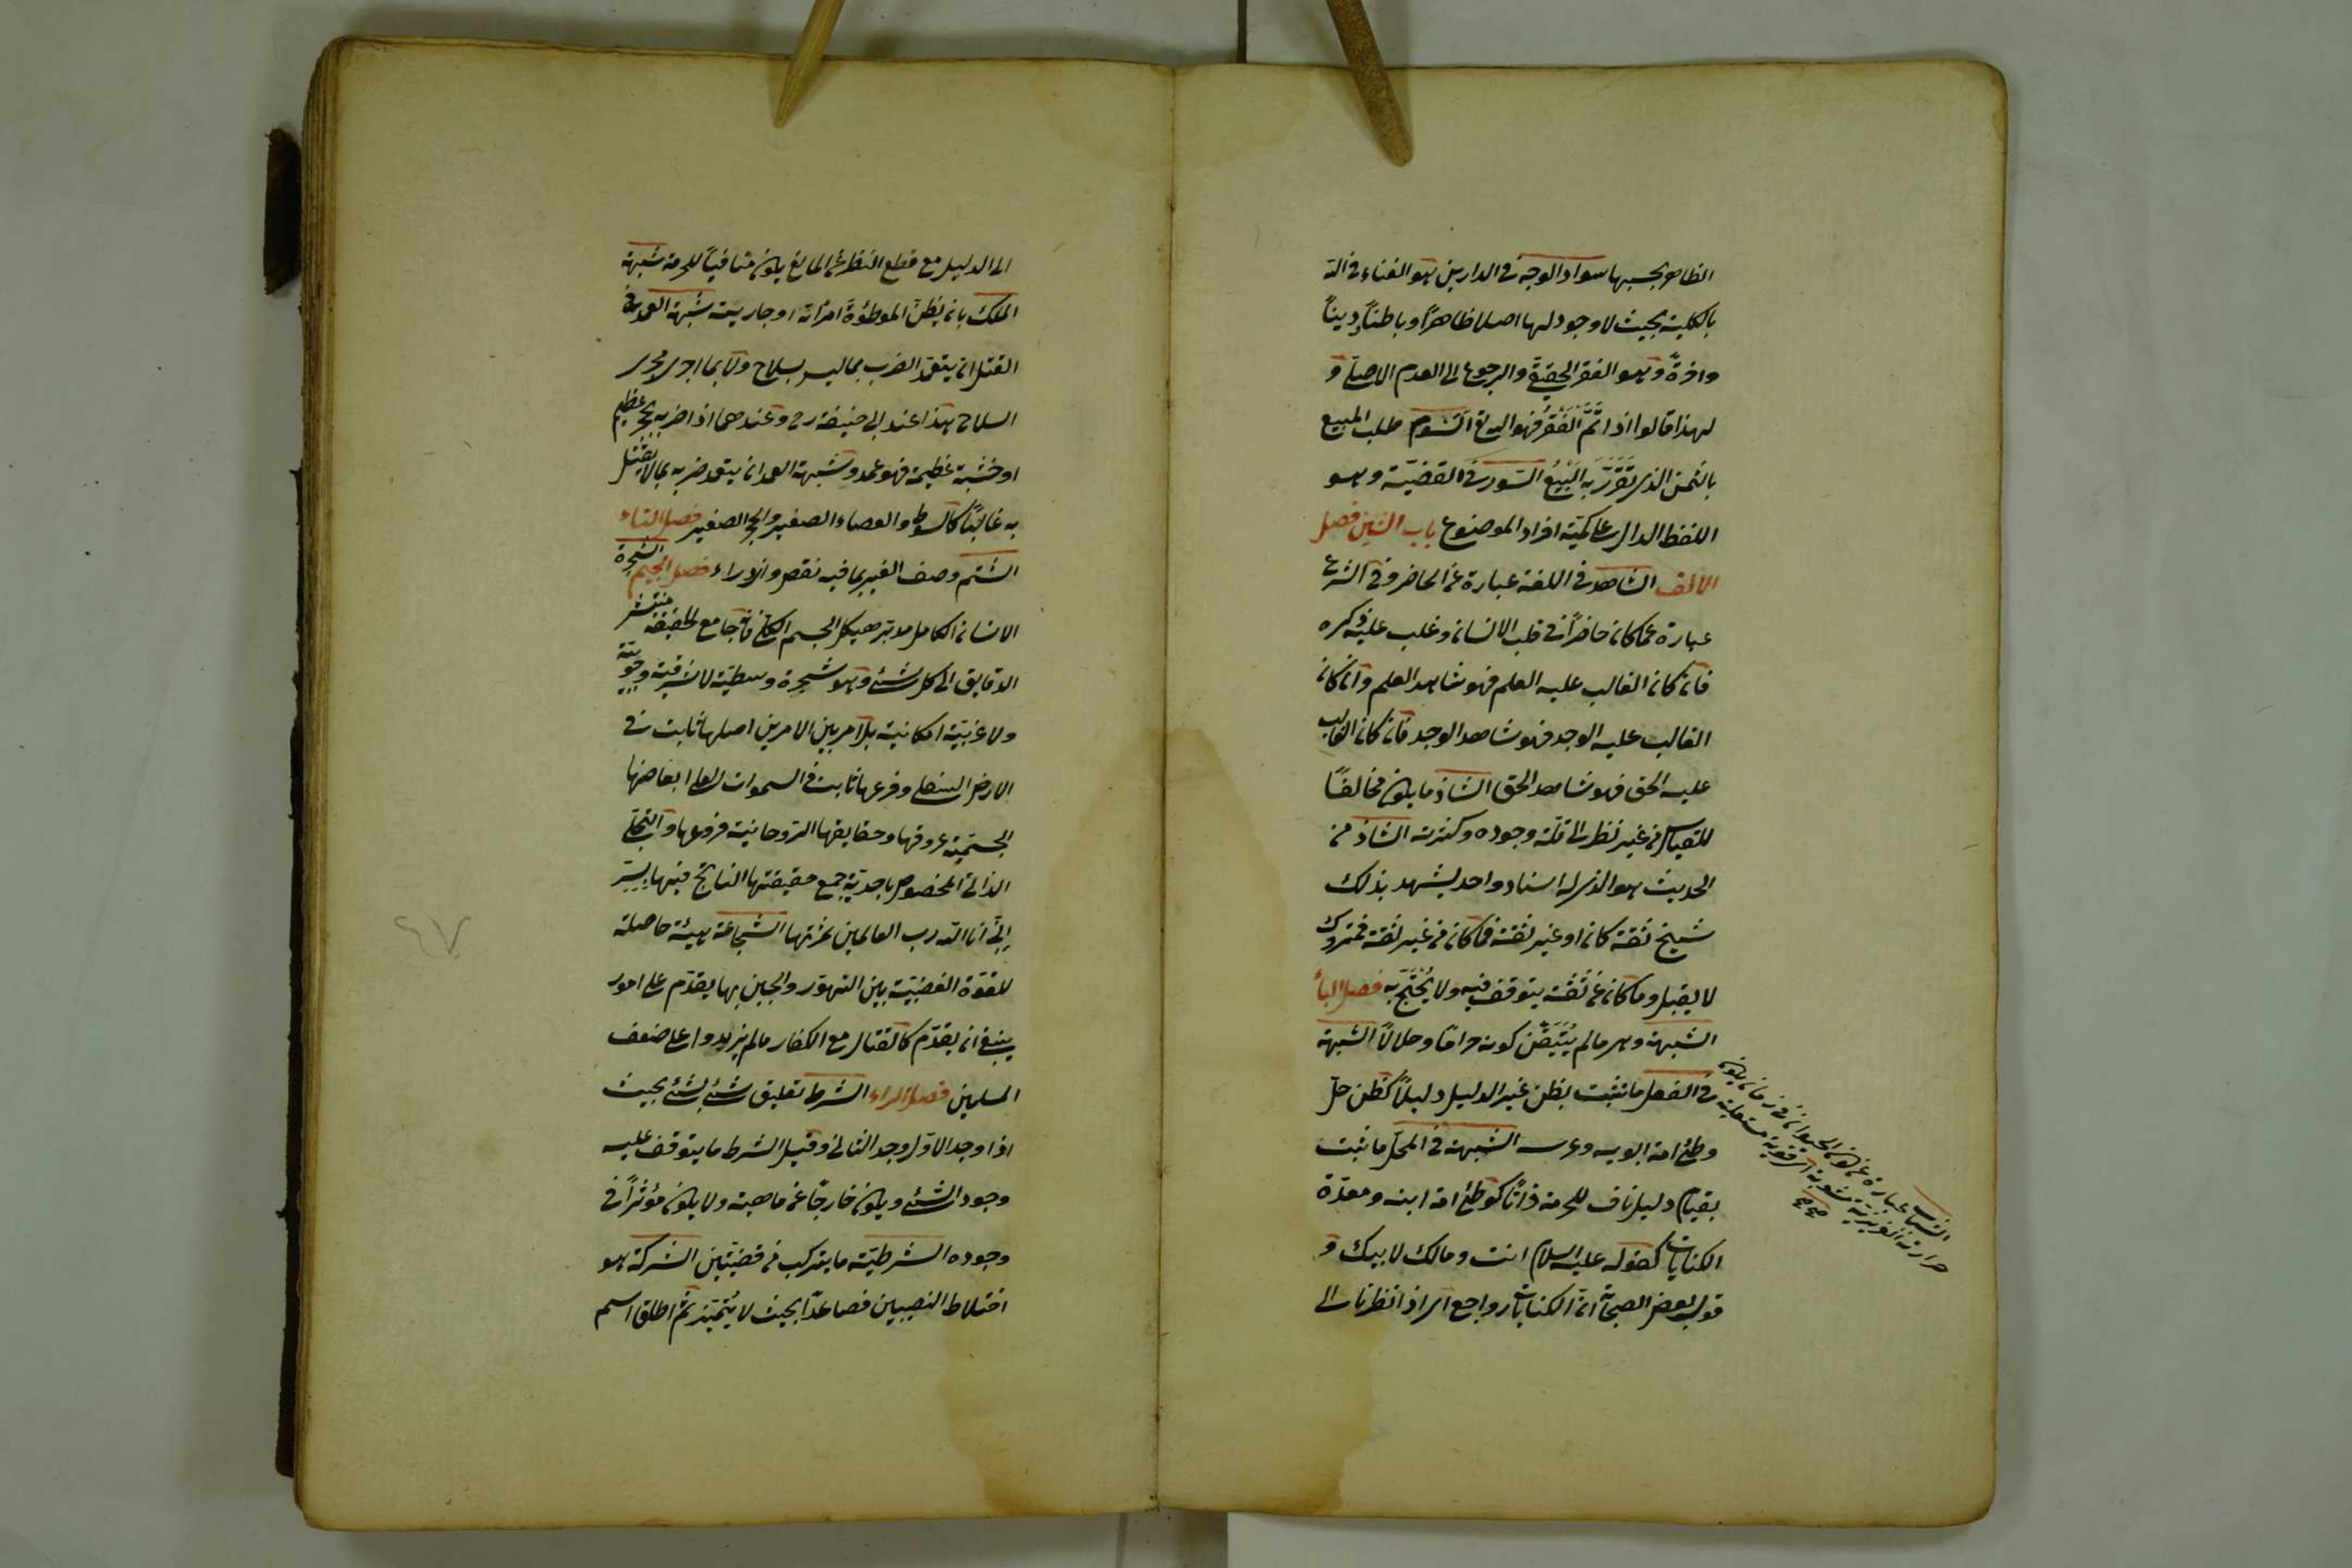 الظاهر بحسبها سواد الوجه في الدارين هو الفناء في الله
بالكلية بحيث لا وجود لها اصلا ظاهراً وباطناً دينياً
واخرةً وهو الفقر الحقيقي والرجوع الى العدم الاصلي و
لهذا قالوا اذا تمّ الفقر فهو الله السوم طلب المبيع
بالثمن الذي تقرّر به البيع السور في القضيّة وهو
اللفظ الدال على كميّة افراد الموضوع باب الشين فصل
الالف الشاهد في اللغة عبارة عن الحاضر وفي الشرع
عبارة عما كان حاضراً في قلب الانسان وغلب عليه ذكره
فان كان الغالب عليه العلم فهو شاهد العلم وان كان
الغالب عليه الوجد فهو شاهد الوجد فان كان الغالب
عليه الحق فهو شاهد الحق الشاذ ما يكون مخالفاً
للقياس من غير نظر الى قلّة وجوده وكثرته الشاذ من
الحديث هو الذي له اسناد واحد يشهد بذلك
شيخ ثقة كان او غير ثقة فما كان من غير ثقة فمتروك
لا يقبل وما كان عن ثقة يتوقف فيه ولا يُحتجّ به فصل الباء
الشبهة وهي ما لم يُتيقّن كونه حراماً وحلالاً الشبهة
في الفعل ما تثبت بظن غير الدليل دليلاً كظن حلّ
وطئ امة ابويه وعرسه الشبهة في المحل ما ثبت
بقيام دليل ناف للحرمة ذاتاً كوطئ امة ابنه ومعتدّة
الكنايات كقوله عليه السلام انت ومالك لابيك و
قول بعض الصحابة ان الكنايات رواجع اي اذا نظرنا الى
الشباب عبارة عن كون الحيوان في زمان يكون
حرارته الغريزية مشبوبة اي قوية مشتعلة
الى الدليل مع قطع النظر عن المانع يكون منافياً للحرمة شبهة
الملك بان يظن الموطؤة امرأته او جاريته شبهة العمد في
القتل ان يتعمّد الضرب بما ليس بسلاح ولا بما اجري مجرى
السلاح هذا عند ابي حنيفة رح وعندهما اذا ضربه بحجر عظيم
او خشبة عظيمة فهو عمد وشبهة العمد ان يتعمد ضربه بما لا يقتل
به غالباً كالسوط والعصاء الصغير والحجر الصغير فصل التاء
الشتم وصف الغير بما فيه نقص وازدراء فصل الجيم الشجرة
الانسان الكامل مدبّر هيكل الجسم الكلي فانه جامع الحقيقة منتشر
الدقايق الى كل شئ وهو شجرة وسطيّة لا شرقية وجوبيّة
ولا غربيّة امكانية بل امر بين الامرين اصلها ثابت في
الارض السفلى وفرعها ثابت في السموات العلى ابعاضها
الجسميّة عروقها وحقايقها الروحانية فروعها والتجلّي
الذاتي المخصوص باحديّة جمع حقيقتها الناتج فيها بسرّ
اني انا الله رب العالمين ثمرتها الشجاعة هيئة حاصلة
للقوة الغضبيّة بين التهوّر والجبن بها يقدّم على امور
ينبغي ان يقدّم كالقتال مع الكفار ما لم يزيدوا على ضعف
المسلمين فصل الراء الشرط تعليق شئ بشئ بحيث
اذا وجد الاوّل وجد الثاني وقيل الشرط ما يتوقف عليه
وجود الشئ ويكون خارجاً عن ماهيته ولا يكون مؤثراً في
وجوده الشرطيّة ما يتركب من قضيّتين الشركة هو
اختلاط النصيبين فصاعداً بحيث لا يتميّز ثم اطلق اسم